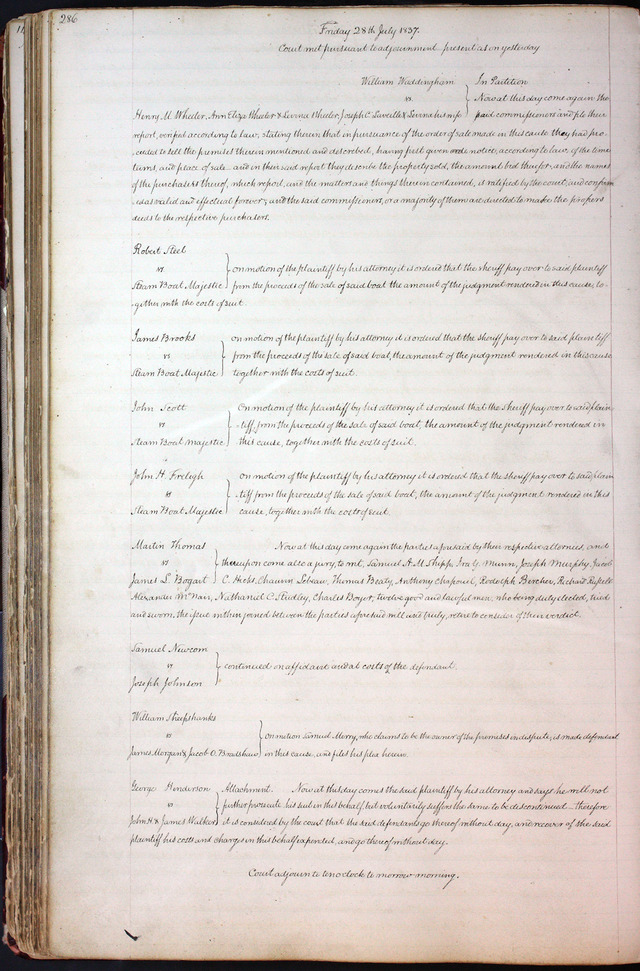 286
Friday 28th July 1837.
Court met pursuant to adjournment present as on yesterday
William Waddingham } In Partition
vs. } Now at this day come again the
Henry M. Wheeler, Ann Eliza Wheeler & Levina Wheeler, Joseph C. Lavielle & Levina his wife } said commissioners and file their
report, verified according to law, stating therein that in pursuance of the order of sale made in this cause they had pro-
ceeded to sell the premises therein mentioned and described, having first given notice, according to law, of the time
terms, and place of sale and in their said report they describe the property sold, the amount bid therefor, and the names
of the purchasers thereof, which report, and the matters and things therein contained, is ratified by the court, and confirm
ed as valid and effectual forever, and the said commissioners, or a majority of them are directed to make the proper
deeds to the respective purchasers.
Robert Steel
vs } on motion of the plaintiff by his attorney it is ordered that the sheriff pay over to said plaintiff
Steam Boat Majestic } from the proceeds of the sale of said boat the amount of the judgment rendered in this cause, to-
gether with the costs of suit.
James Brooks } on motion of the plaintiff by his attorney it is ordered that the sheriff pay over to said plaintiff
vs } from the proceeds of the sale of said boat, the amount of the judgment rendered in this cause
Steam Boat Majestic } together with the costs of suit.
John Scott } On motion of the plaintiff by his attorney it is ordered that the sheriff pay over to said plain
vs } tiff, from the proceeds of the sale of said boat, the amount of the judgment rendered in
Steam Boat majestic } this cause, together with the costs of suit.
John H. Freligh } on motion of the plaintiff by his attorney it is ordered that the sheriff pay over to said plain
vs } tiff from the proceeds of the sale of said boat, the amount of the judgment rendered in this
Steam Boat Majestic } cause, together with the costs of suit.
Martin Thomas } Now at this day come again the parties aforesaid by their respective attornies, and
vs } thereupon come also a jury, to wit, Samuel A. M. Shipp, Ira G. Munn, Joseph Murphy, Jacob
James L. Bogart } C. Hicks, Chauvin Lebeau, Thomas Beaty, Anthony Rodolph Bercher, Richard
Alexander McNair, Nathaniel C. Studley, Charles Boyer, twelve good and lawful men, who being duly elected, tried
and sworn, the issue within joined between the parties aforesaid well and truly, retire to consider of their verdict.
Samuel Newcom
vs } continued on affidavit and at costs of the defendant.
Joseph Johnson
William Sheepshanks
vs } on motion Samuel Merry, who claims to be the owner of the premises in dispute, is made defendant
James Morgan & Jacob O. Bradshaw } in this cause, and files his plea herein.
George Henderson } Attachment. Now at this day comes the said plaintiff by his attorney and says he will not
vs } further prosecute his suit in this behalf, but voluntarily suffers the same to be discontinued therefore
John H & James Walker } it is considered by the court that the said defendants go thereof without day, and recover of the said
plaintiff his costs and charges in this behalf expended, and go thereof without day.
Court adjourn to ten oclock to morrow morning.